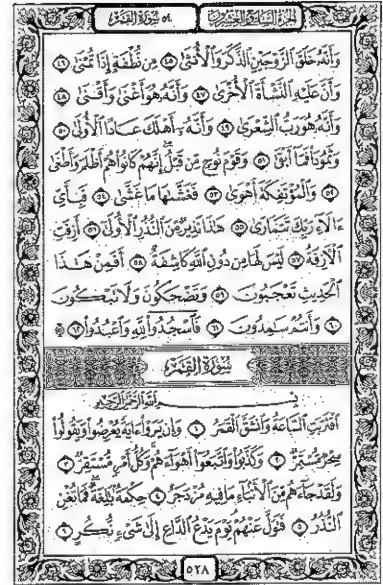 الجزء السابع والعشرون
٥٤ سورة القمر
وَأَنَّهُ خَلَقَ الزَّوْجَيْنِ الذَّكَرَ وَالْأُنثَىٰ ٤٥ مِن نُّطْفَةٍ إِذَا تُمْنَىٰ ٤٦
وَأَنَّ عَلَيْهِ النَّشْأَةَ الْأُخْرَىٰ ٤٧ وَأَنَّهُ هُوَ أَغْنَىٰ وَأَقْنَىٰ ٤٨
وَأَنَّهُ هُوَ رَبُّ الشِّعْرَىٰ ٤٩ وَأَنَّهُ أَهْلَكَ عَادًا الْأُولَىٰ ٥٠
وَثَمُودَا فَمَا أَبْقَىٰ ٥١ وَقَوْمَ نُوحٍ مِّن قَبْلُ إِنَّهُمْ كَانُوا هُمْ أَظْلَمَ وَأَطْغَىٰ
٥٢ وَالْمُؤْتَفِكَةَ أَهْوَىٰ ٥٣ فَغَشَّاهَا مَا غَشَّىٰ ٥٤ فَبِأَيِّ
ءَالَاءِ رَبِّكَ تَتَمَارَىٰ ٥٥ هَٰذَا نَذِيرٌ مِّنَ النُّذُرِ الْأُولَىٰ ٥٦ أَزِفَتِ
الْآزِفَةُ ٥٧ لَيْسَ لَهَا مِن دُونِ اللَّهِ كَاشِفَةٌ ٥٨ أَفَمِنْ هَٰذَا
الْحَدِيثِ تَعْجَبُونَ ٥٩ وَتَضْحَكُونَ وَلَا تَبْكُونَ
٦٠ وَأَنتُمْ سَامِدُونَ ٦١ فَاسْجُدُوا لِلَّهِ وَاعْبُدُوا ۩ ٦٢
سُورَةُ الْقَمَرِ
بِسْمِ اللَّهِ الرَّحْمَٰنِ الرَّحِيمِ
اقْتَرَبَتِ السَّاعَةُ وَانشَقَّ الْقَمَرُ ١ وَإِن يَرَوْا ءَايَةً يُعْرِضُوا وَيَقُولُوا
سِحْرٌ مُّسْتَمِرٌّ ٢ وَكَذَّبُوا وَاتَّبَعُوا أَهْوَاءَهُمْ وَكُلُّ أَمْرٍ مُّسْتَقِرٌّ ٣
وَلَقَدْ جَاءَهُم مِّنَ الْأَنبَاءِ مَا فِيهِ مُزْدَجَرٌ ٤ حِكْمَةٌ بَالِغَةٌ فَمَا تُغْنِ
النُّذُرُ ٥ فَتَوَلَّ عَنْهُمْ يَوْمَ يَدْعُ الدَّاعِ إِلَىٰ شَيْءٍ نُّكُرٍ ٦
٥٢٨